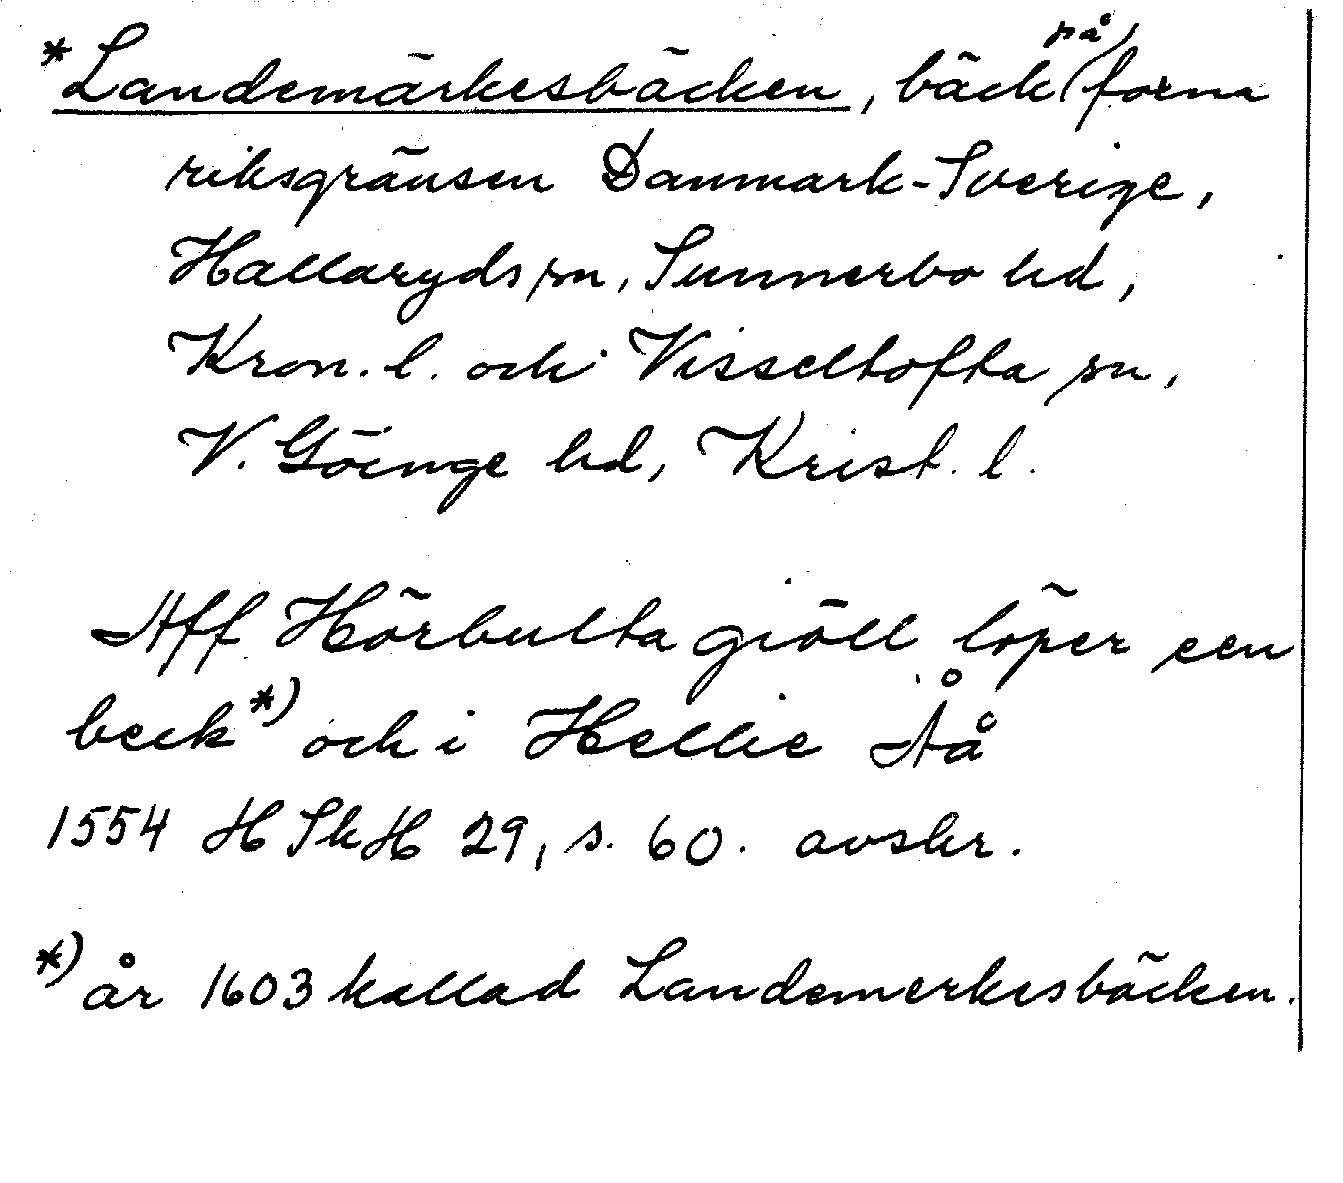 *Landemärkesbäcken, bäck på forna
riksgränsen Danmark-Sverige,
Hallaryds sn, Sunnerbo hd,
Kron. l. och Visseltofta sn,
V. Göinge hd, Krist. l.
Aff Hörbulta giöll löper een
beck*) och i Hellie Åå
1554 HSkH 29, s. 60. avskr.
*) år 1603 kallad Landemerkesbäcken.